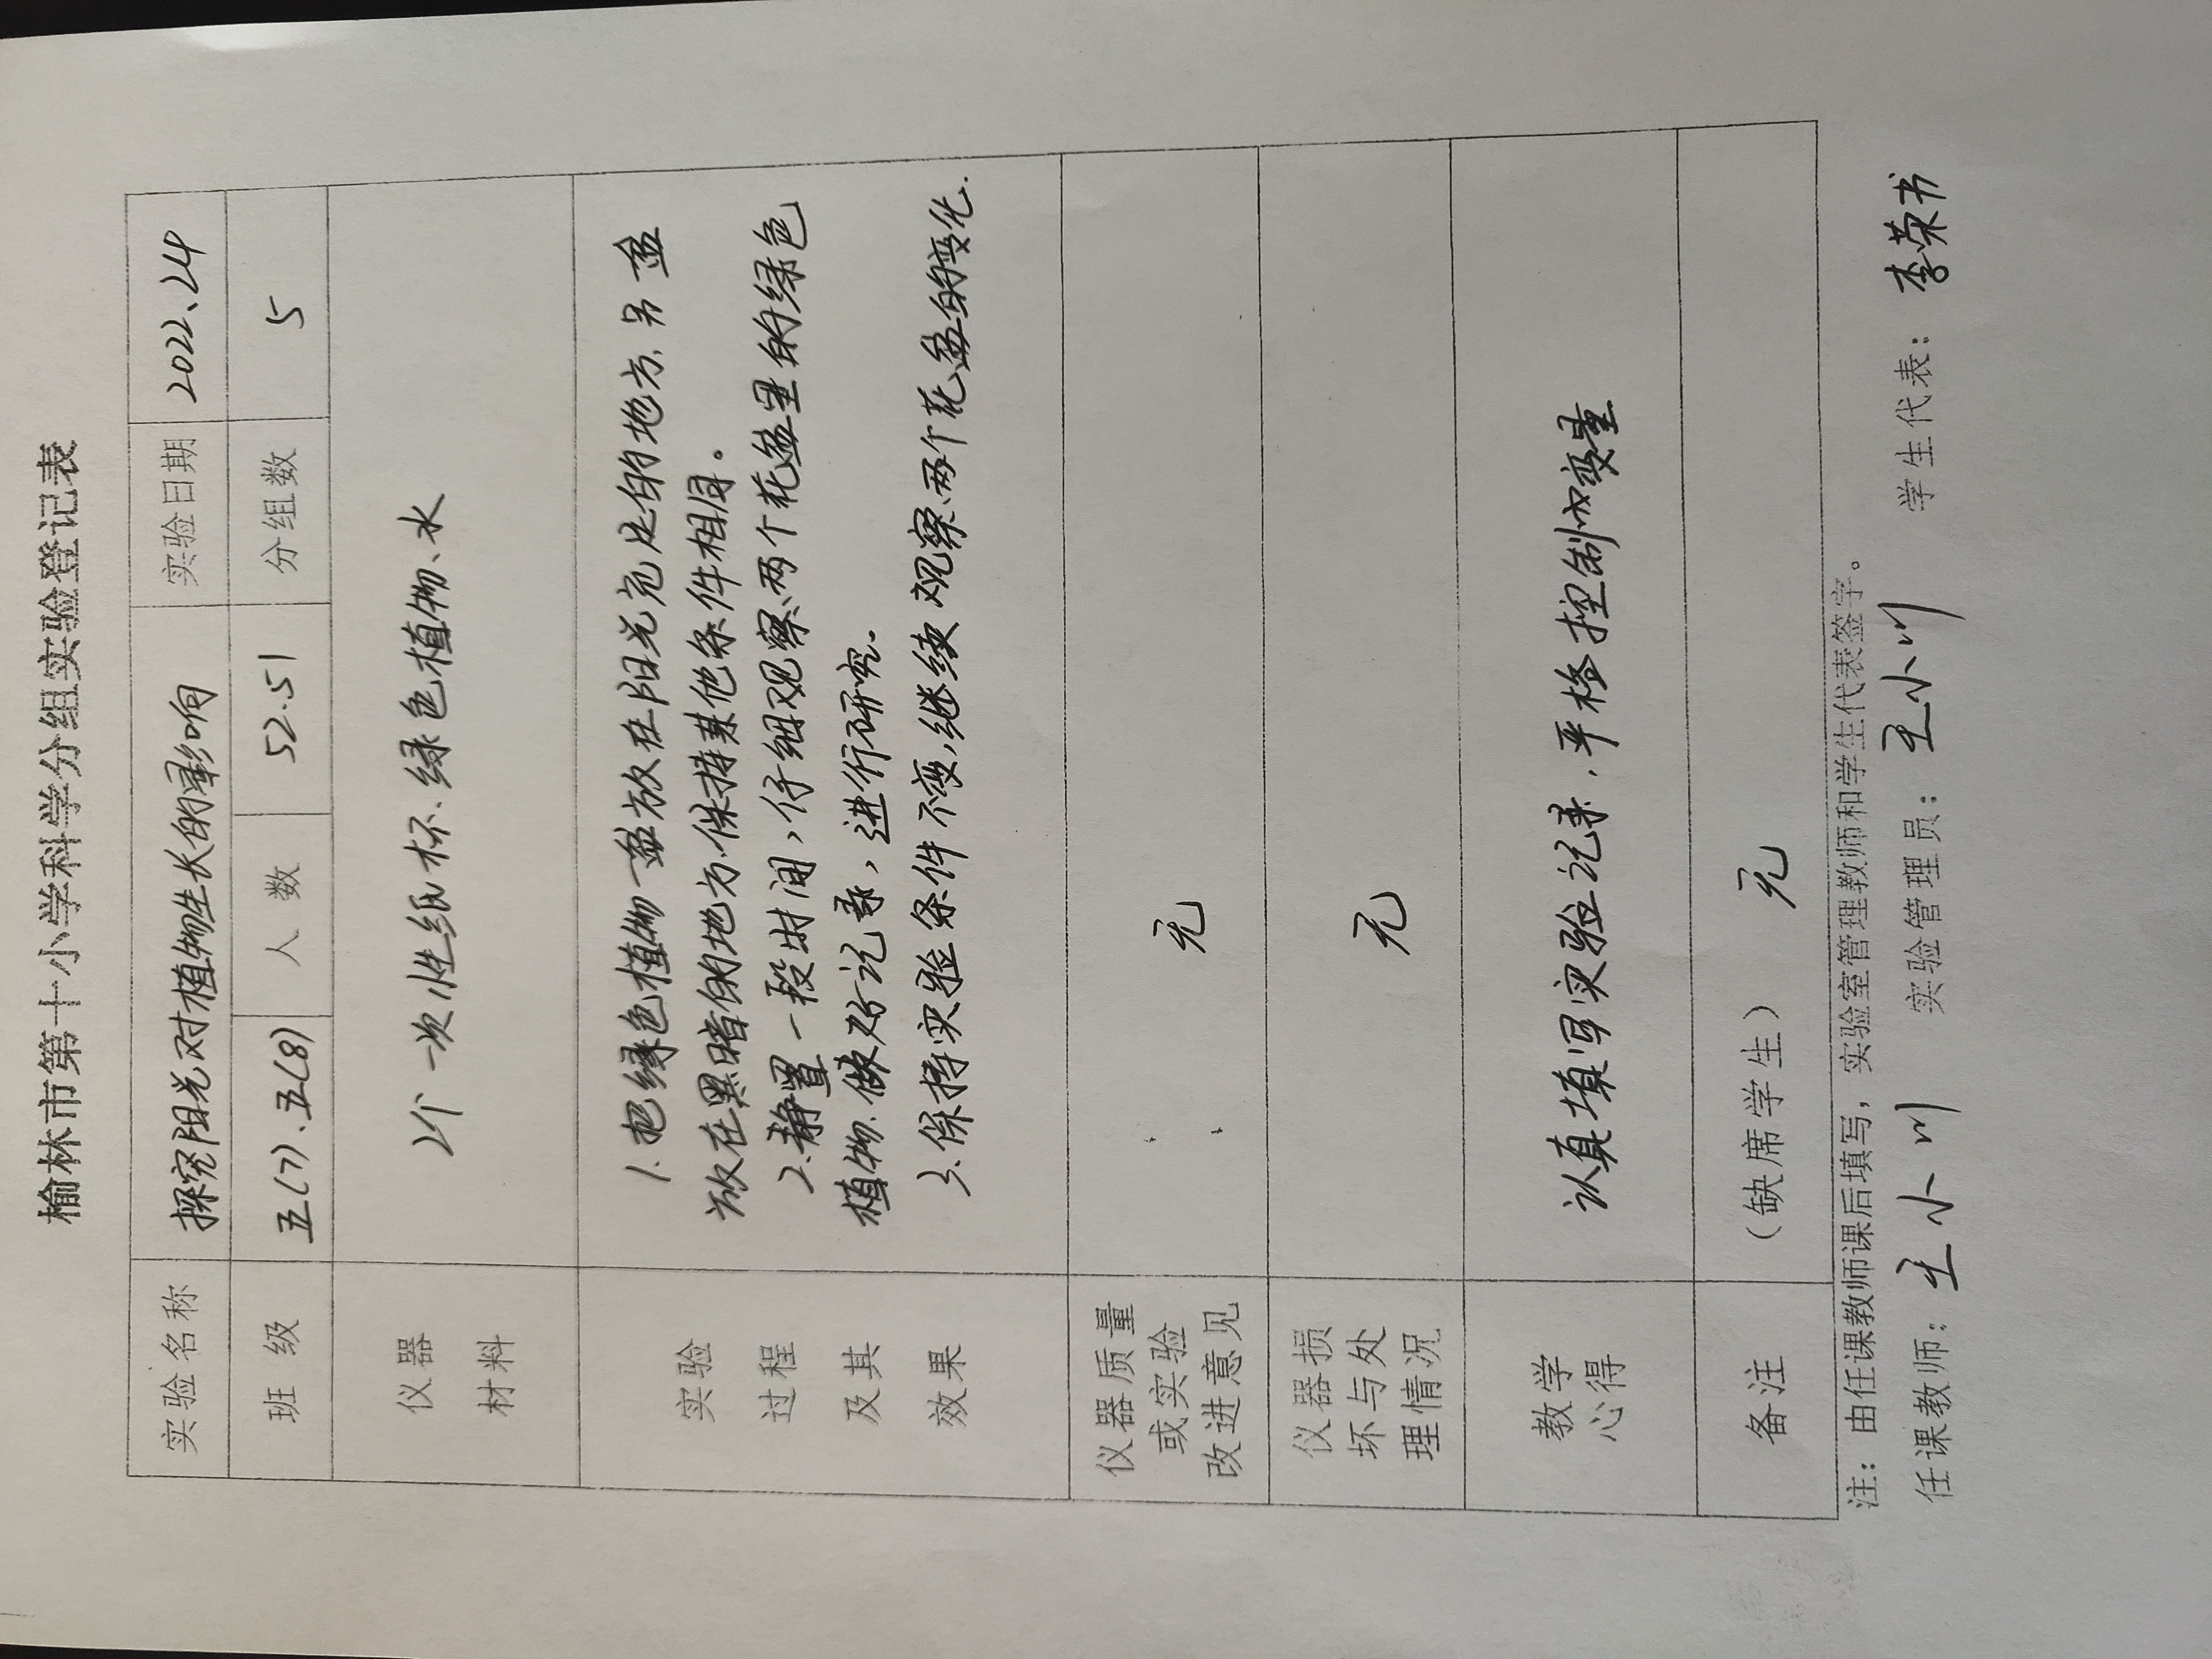 榆林市第十小学科学分组实验登记表
实验名称 探究阳光对植物生长的影响 实验日期 2022、24
班 级 五(7)、五(8) 人 数 52.51 分组数 5
仪器
材料
2个一次性纸杯、绿色植物、水
实验
过程
及其
效果
1.把绿色植物一盆放在阳光充足的地方、另 盆
放在黑暗的地方.保持其他条件相同。
2.静置一段时间,仔细观察两个花盆里的绿色
植物、做好记录,进行研究。
3.保持实验条件不变,继续观察两个花盆的变化.
仪器质量
或实验
改进意见
无
仪器损
坏与处
理情况
无
教学
心得
认真填写实验记录,严格控制变量
备注 (缺席学生) 无
注:由任课教师课后填写,实验室管理教师和学生代表签字。
任课教师: 王小川 实验管理员: 王小川 学生代表: 李荣书